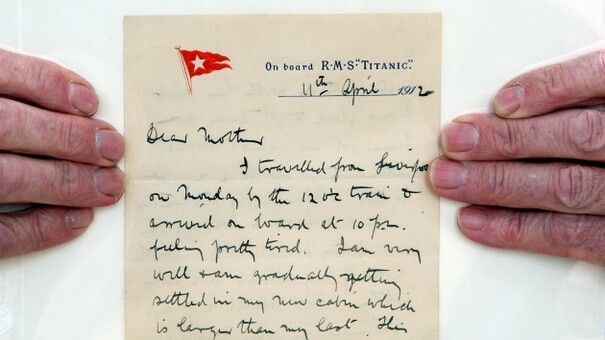 On board R·M·S "TITANIC".
11th April 1912
Dear Mother
I travelled from Liverpool
on Monday by the 12 o'c train &
arrived on board at 10 p.m.
feeling pretty tired. I am very
well & am gradually getting
settled in my new cabin which
is larger than my last. This